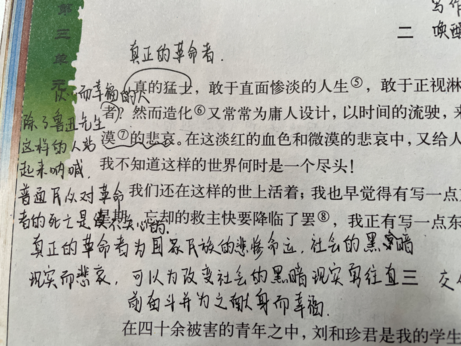 第三单元
写作
二 唤醒
真正的革命者.
真的猛士，敢于直面惨淡的人生⑤，敢于正视淋
而幸福的人
者？然而造化⑥又常常为庸人设计，以时间的流驶，来
除了鲁迅先生
漠⑦的悲哀。在这淡红的血色和微漠的悲哀中，又给人
这样的人站
起来呐喊.
我不知道这样的世界何时是一个尽头！
普通民众对革命
我们还在这样的世上活着；我也早觉得有写一点
者的死亡是 的.
忘却的救主快要降临了罢⑧，我正有写一点东
真正的革命者为国家民族的悲惨命运，社会的黑暗
现实而悲哀，可以为改变社会的黑暗现实勇往直
三
前奋斗并为之献身而幸福.
在四十余被害的青年之中，刘和珍君是我的学生